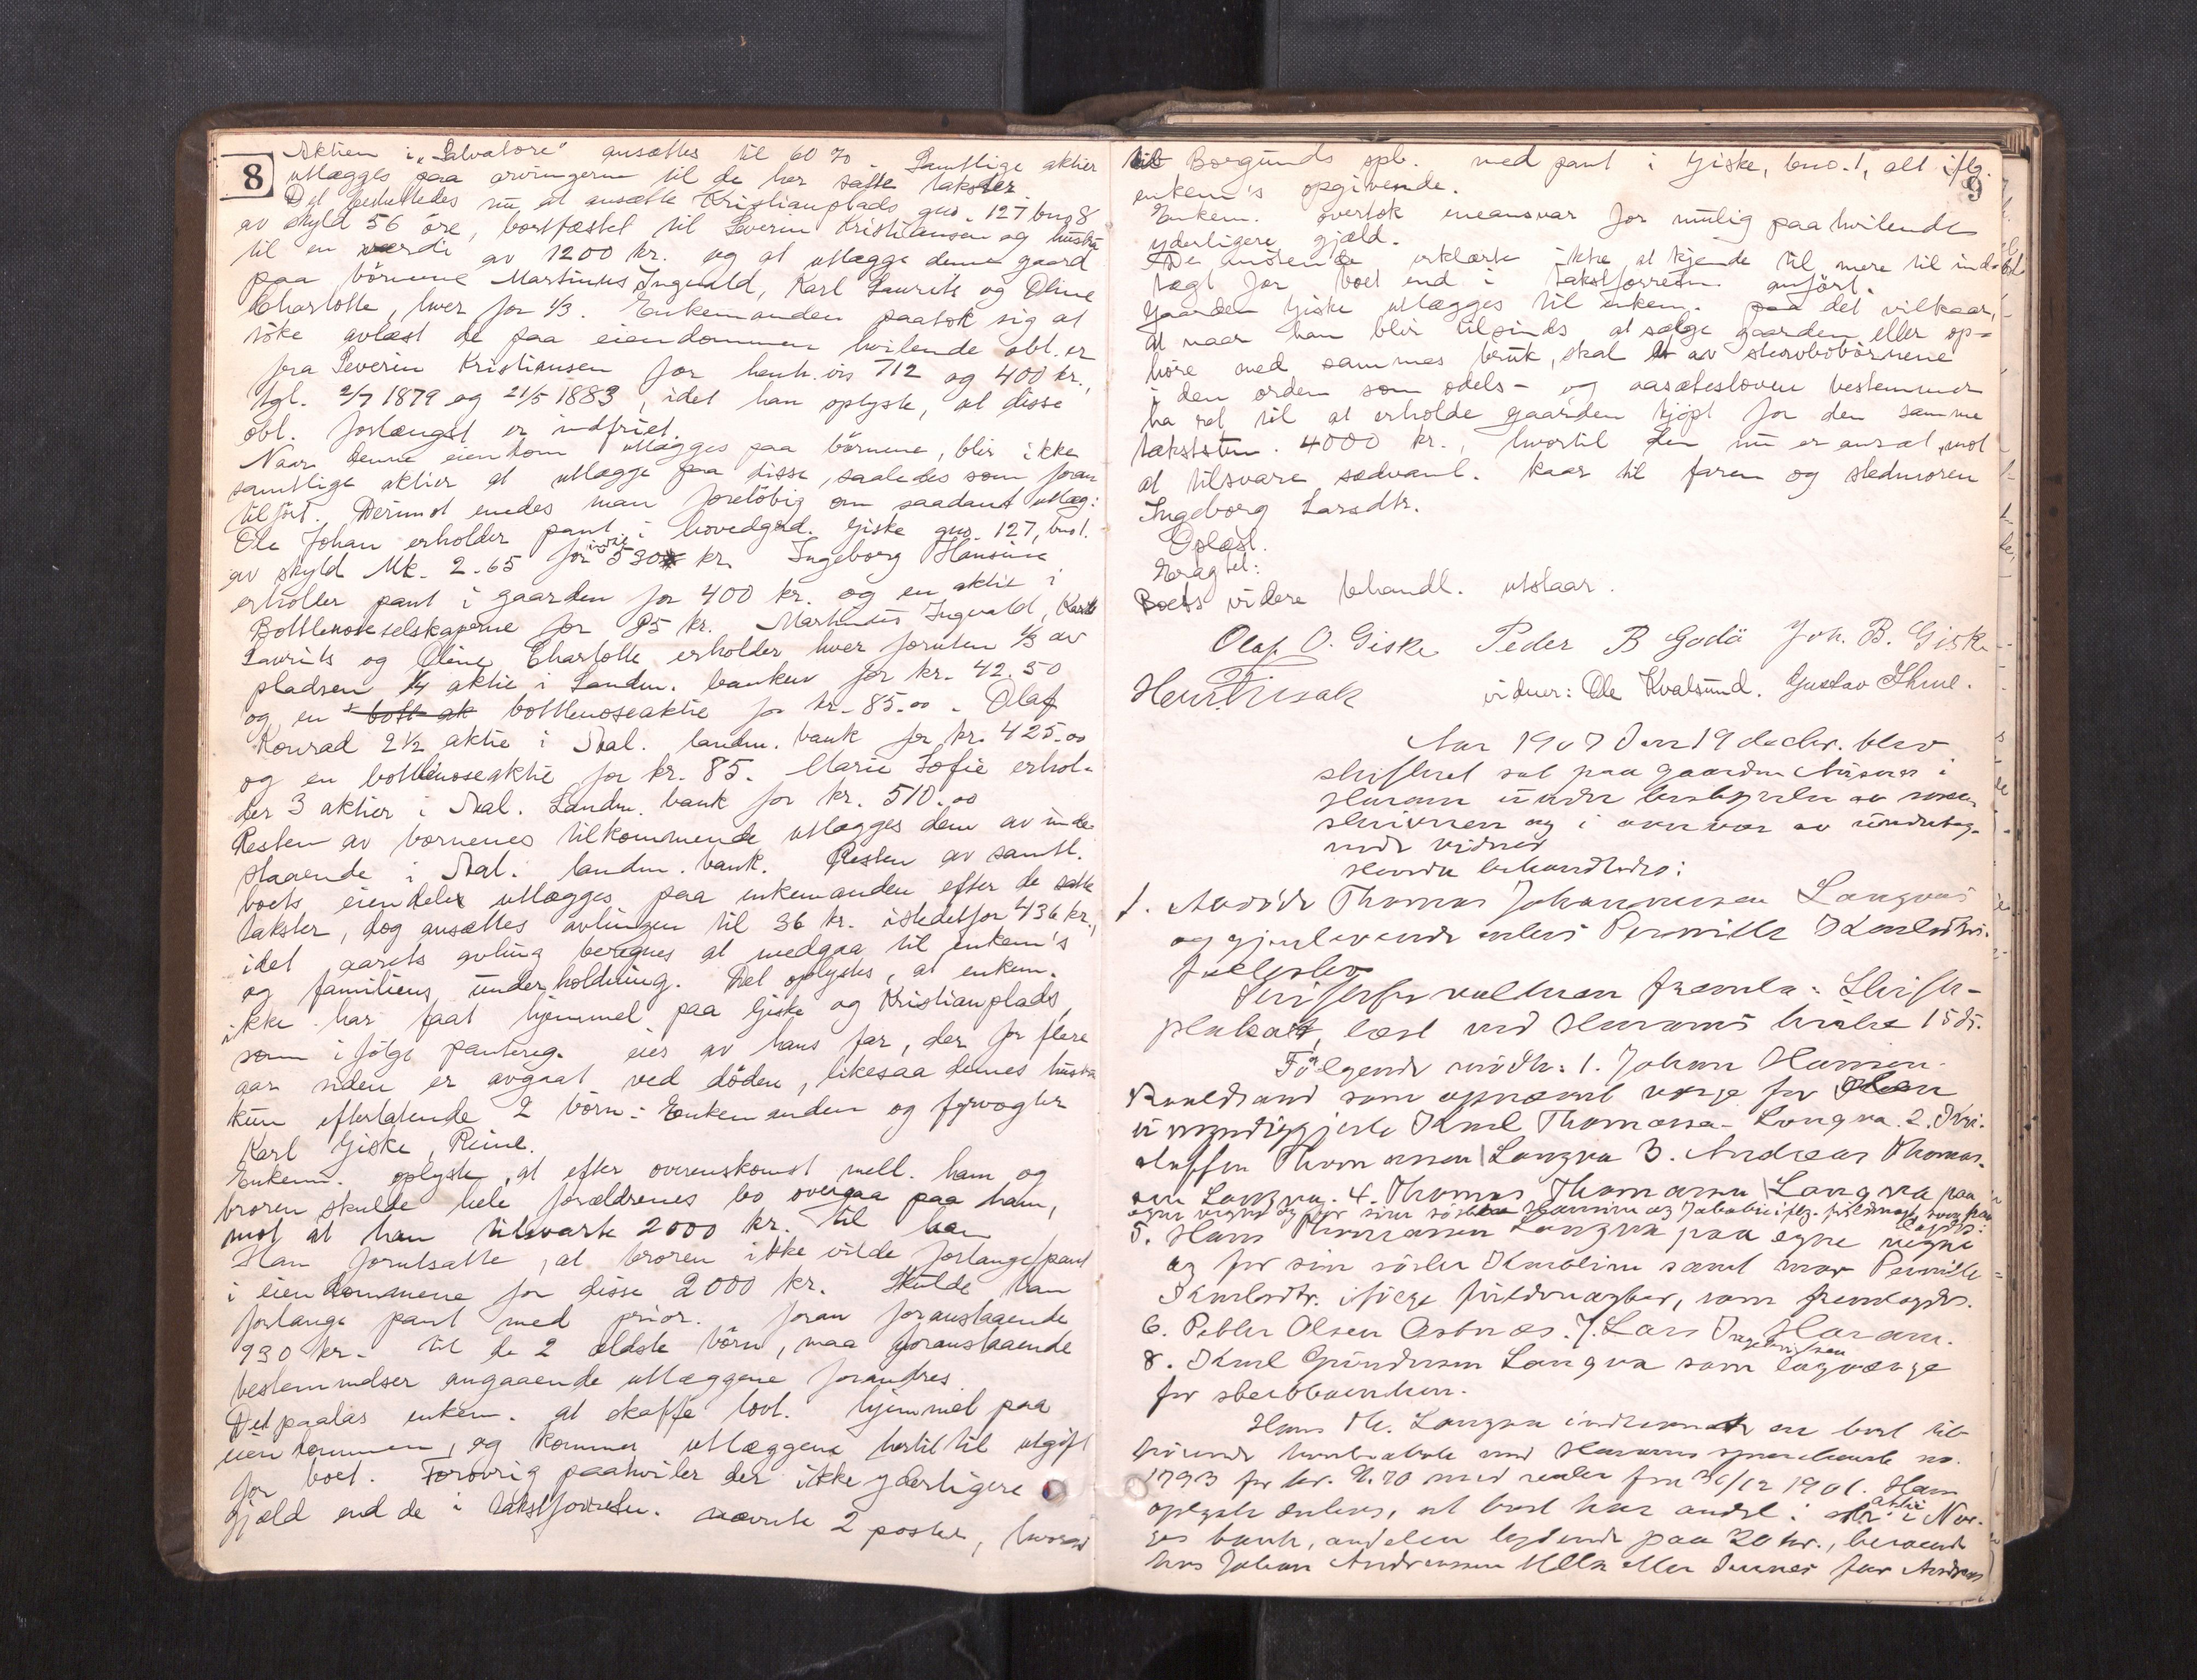 8
Aktien i „Salvatore" ansættes til 60 %. Samtlige aktier
utlægges paa arvingerne til de her satte takster.
Det besluttedes nu at ansætte Kristianplads gno. 127 bno 8
av skyld 56 öre, bortfæstet til Severin Kristiansen og hustru
til en værdi av 1200 kr. og at utlægge denne gaard
paa börnene Martinus Ingvald, Karl Laurits og Oline
Charlotte, hver for 1/3. Enkemanden paatok sig at
söke avlæst de paa eiendommen hvilende obl. er
fra Severin Kristiansen for henh.vis 712 og 400 kr.,
tgl. 2/7 1879 og 21/5 1883, idet han oplyste, at disse
obl. forlængst er indfriet.
Naar denne eiendom utlægges paa börnene, blir ikke
samtlige aktier at utlægge paa disse, saaledes som foran
tilfört. Derimot enedes man foreløbig om saadant utlæg:
Ole Johan erholder pant i hovedgrd. Giske gno. 127, bno 1.
av skyld Mk. 2.65 for 530 kr. Ingeborg Hansine
erholder pant i gaarden for 400 kr. og en aktie i
Bottlenoseselskaperne for 85 kr. Martinus Ingvald, Karl
Laurits og Oline Charlotte erholder hver foruten 1/3 av
pladsen 1/4 aktie i Landm. banken for kr. 42.50
og en bott ak bottlenoseaktie for kr. 85.00. Olaf
Konrad 2 1/2 aktie i Aal. landm. bank for kr. 425.00
og en bottlenoseaktie for kr. 85. Marie Sofie erhol-
der 3 aktier i Aal. Landm. bank for kr. 510.00
Resten av börnenes tilkommende utlægges dem av inde-
staaende i Aal. landm. bank. Resten av samtl.
boets eiendeler utlægges paa enkemanden efter de satte
takster, dog ansættes avlingen til 36 kr. istedetfor 436 kr.,
idet aarets avling beregnes at medgaa til enkem's
og familiens underholdning. Det oplystes, at enkem.
ikke har faat hjemmel paa Giske og Kristianplads,
som ifölge pantereg. eies av hans far, der for flere
aar siden er avgaat ved döden, likesaa dennes hustru
kun efterlatende 2 börn: Enkemanden og fyrvogter
Karl Giske, Reine.
Enkem. oplyste, at efter overenskomst mell. ham og
broren skulde hele forældrenes bo overgaa paa ham,
mot at han tilsvarte 2000 kr. til ham
Han forutsatte, at broren ikke vilde forlange pant
i eiendommene for disse 2000 kr. Skulde han
forlange pant med prior. foran foranstaaende
930 kr. til de 2 ældste börn, maa foranstaaende
bestemmelser angaaende utlæggene forandres.
Det paalas enkem. at skaffe lovl. hjemmel paa
eiendommen, og kommer utlæggene hertil til utgift
for boet. Forøvrig paahviler der ikke yderligere
gjæld end de i takstforretn. nævnte 2 poster, hvorav
9
til Borgunds spb. med pant i Giske, bno. 1, alt iflg.
enkem's opgivende.
Enkem. overtok eneansvar for mulig paahvilende
yderligere gjæld.
De mötende erklærte ikke at kjende til mere til ind-
tægt for boet end i takstforretn. anfört.
Gaarden Giske utlægges til enkem. paa det vilkaar,
at naar han blir tilsinds at sælge gaarden eller op-
höre med sammes bruk, skal et av stervbobörnene
i den orden som odels- og aasætesloven bestemmer
ha ret til at erholde gaarden kjöpt for den samme
takstsum 4000 kr., hvortil den nu er ansat, mot
at tilsvare sedvanl. kaar til faren og stedmoren
Ingeborg Larsdtr.
Oplæst.
Eragtet:
Boets videre behandl. utstaar.
Olaf O. Giske Peder B Godö Joh. B. Giske
vidner: Ole Kvalsund. Gustav Thue.
Aar 1907 den 19 decbr. blev
skifteret sat paa gaarden i
Haram under bestyrelse av soren-
skriveren og i overvær av underteg-
nede vidner
Herunder behandledes:
1. Avdöde Thomas Johannesen Longvas
og gjenlevende enkes Pernille Knudsdtr.
fællesbo
Skifteforvalteren fremla: Skifte-
plakat, læst ved Harams kirke 15 ds.
Følgende mödte: 1. Johan Hansen
Kvalsund som opnævnt verge for den
umyndiggjorte Knut Thomassen Longva. 2. Kri-
stoffer Thomassen Longva 3. Andreas Thomas-
sen Longva. 4. Thomas Thomassen Longva paa
egne vegne og for sine söstre Hansine og Jakobine iflg. fuldmagt, som frem
lagdes:
5. Hans Thomassen Longva paa egne vegne
og for sin söster Karoline samt mor Pernille
Knudsdtr. ifölge fuldmagter, som fremlagdes.
6. Petter Olsen Austnæs. 7. Lars Ingebrigtsen Haram.
8. Knut Gundersen Longva som lagverge
for stervboenken.
Hans Th. Longva indleverte en boet til-
hörende kontrabok med Harams sparebank no.
1793 for kr. 4.70 med renter fra 30/12 1901. Han
oplyste endvidere, at boet har andel i aktie i Nor-
ges bank, andelen lydende paa 20 kr., beroende
hos Johan Andreassen Ulla eller dennes far Andreas